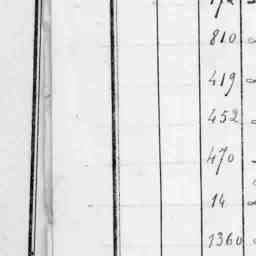 810
419
452
470
14
1360